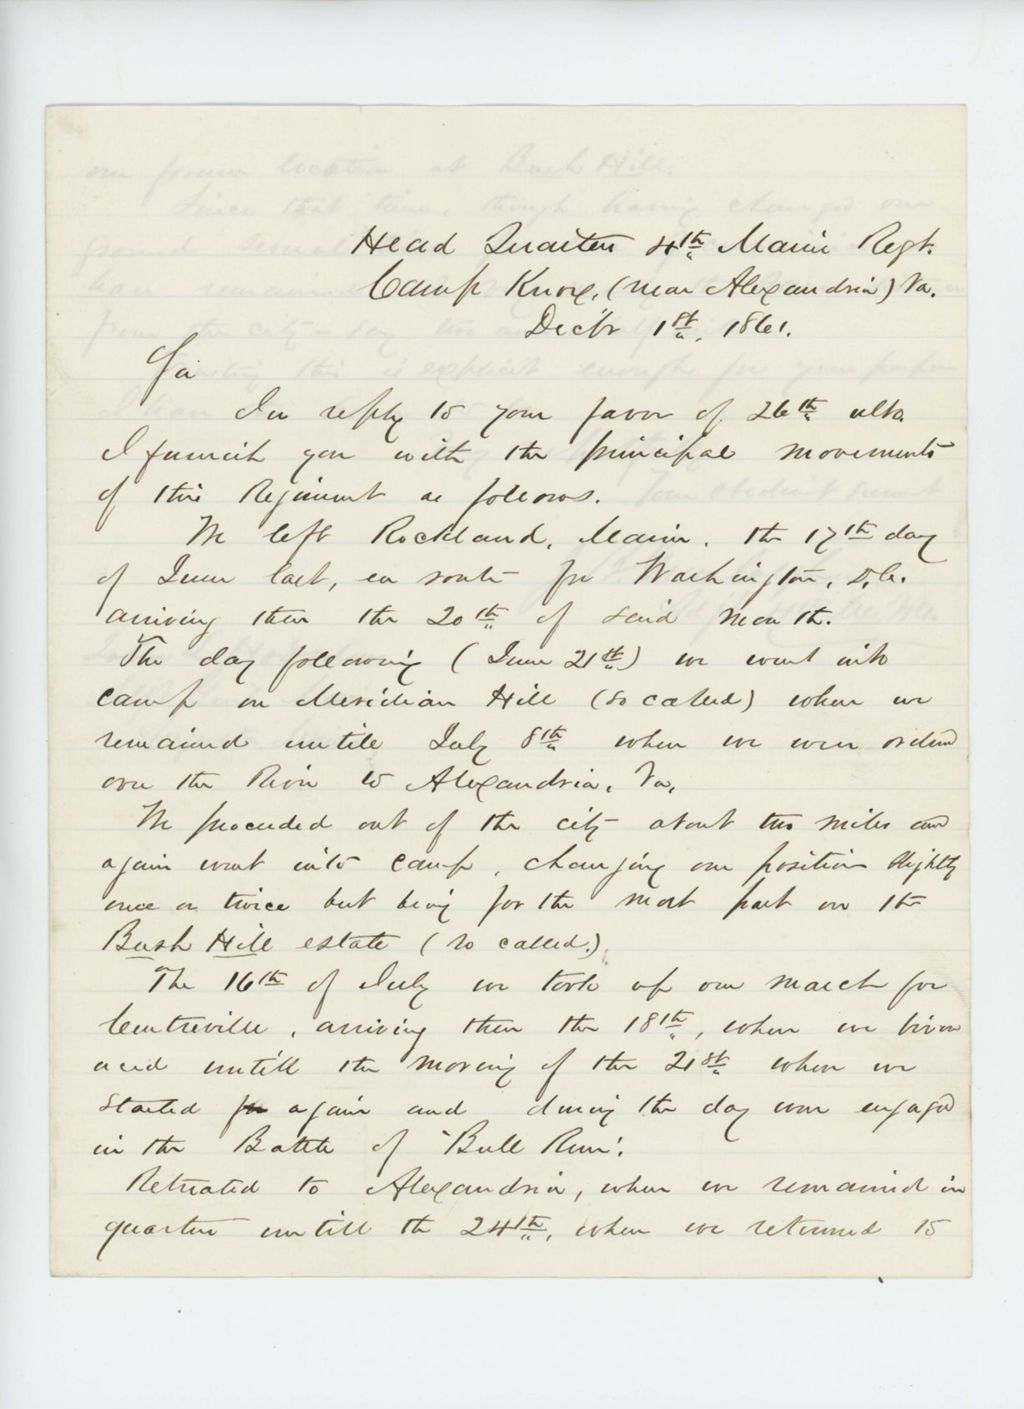 Head Quarters 4th Maine Regt.
Camp Knox, (near Alexandria) Va.
Decbr 1st, 1861.
Sir
In reply to your favor of 26th ulto.
I furnish you with the principal movements
of this Regiment as follows.
We left Rockland, Maine, the 17th day
of June last, en route for Washington, D.C.
arriving there the 20th of said month.
The day following (June 21st) we went into
camp on Meridian Hill (so called) where we
remained untill July 8th when we were ordered
over the River to Alexandria, Va,
We proceeded out of the city about two miles and
again went into camp, changing our position slightly
once or twice but being for the most part on the
Bush Hill estate (so called.)
The 16th of July we took up our march for
Centreville, arriving there the 18th, where we bivou
aced untill the morning of the 21st when we
started for again and during the day were engaged
in the Battle of "Bull Run".
Retreated to Alexandria, where we remained in
quarters untill the 24th, when we returned to
our former location at Bush Hill.
Since that time, though having changed our